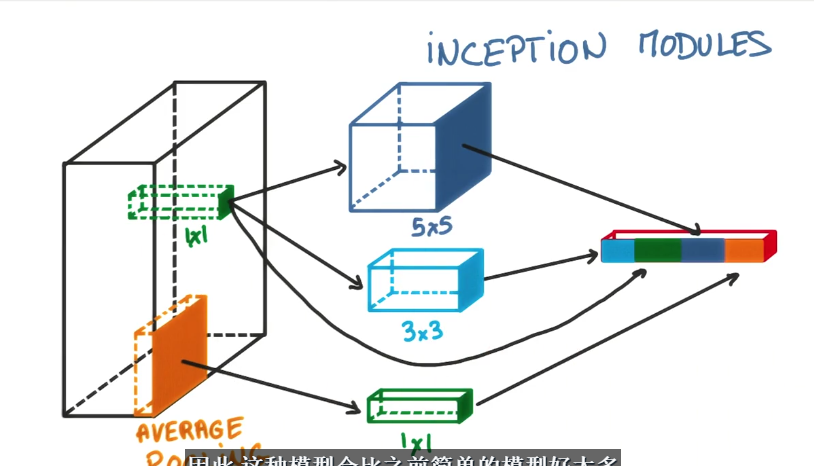 INCEPTION MODULES
1x1
5x5
3x3
1x1
AVERAGE
POOLING
因此 这种模型会比之前简单的模型好太多